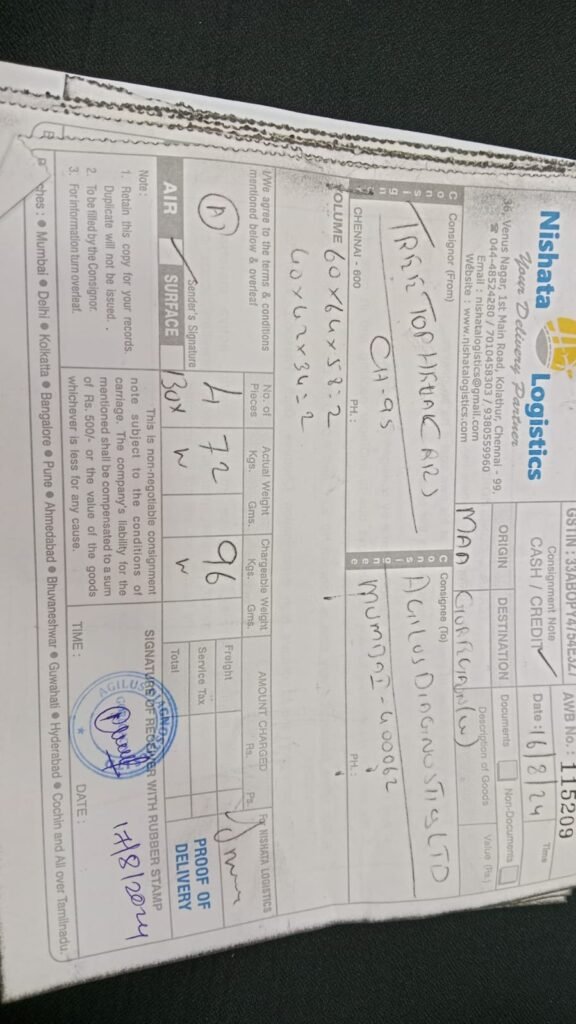 GSTIN : 33ABOPY4754E3Z1
AWB No. : 115209
Nishata Logistics
Your Delivery Partner
36, Venus Nagar, 1st Main Road, Kolathur, Chennai - 99.
☎ 044-48524280 / 7010458303 / 9380559960
Email : nishatalogistics@gmail.com
Website : www.nishatalogistics.com
Consignment Note
CASH / CREDIT
Date : 16/8/24
Time
ORIGIN
DESTINATION
Documents
Non-Documents
MAA
Description of Goods
Value (Rs.)
Consignor
Consignor (From)
TREE TOP
CH-95
CHENNAI - 600
PH.:
Consignee
Consignee (To)
AGILUS DIAGINOSTICS LTD
MUMBAI - 400062
PH.:
VOLUME 60 x 64 x 58 = 2
40 x 42 x 34 = 2
I/We agree to the terms & conditions
mentioned below & overleaf
No. of
Pieces
Actual Weight
Kgs. Gms.
Chargeable Weight
Kgs. Gms.
AMOUNT CHARGED
Rs. Ps.
For NISHATA LOGISTICS
A
4
BOX
72
96
Freight
Service Tax
Total
Sender's Signature
AIR
SURFACE
PROOF OF
DELIVERY
Note :
1. Retain this copy for your records.
Duplicate will not be issued .
2. To be filled by the Consignor.
3. For information turn overleaf.
This is non-negotiable consignment
note subject to the conditions of
carriage. The company's liability for the
mentioned shall be compensated to a sum
of Rs. 500/- or the value of the goods
whichever is less for any cause.
SIGNATURE OF RECEIVER WITH RUBBER STAMP
AGILUS DIAGNOS
17/8/2024
TIME :
DATE :
ches : ● Mumbai ● Delhi ● Kolkatta ● Bangalore ● Pune ● Ahmedabad ● Bhuvaneshwar ● Guwahati ● Hyderabad ● Cochin and All over Tamilnadu.